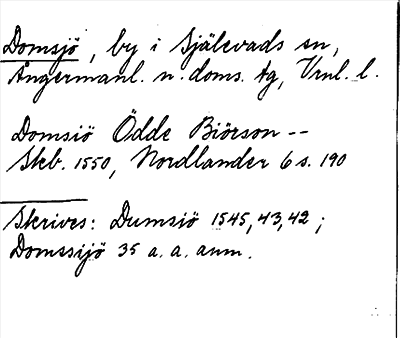 Domsjö, by i Själevads sn,
Ångermanl. n. doms. tg, Vrnl. l.
Domsiö Ödde Biörson --
Skb. 1550, Nordlander 6 s. 190
Skrives: Dumsiö 1545, 43, 42;
Domssijö 35 a. a. anm.